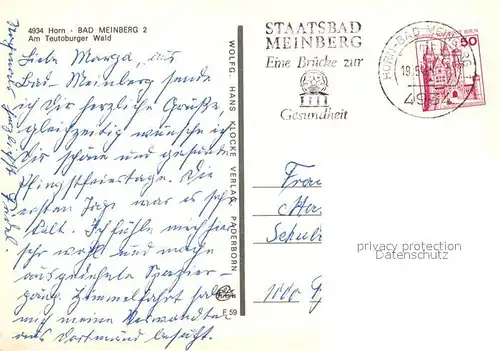 4934 Horn - BAD MEINBERG 2
Am Teutoburger Wald
Liebe Marga, aus
Bad-Meinberg sende
ich Dir herzliche Grüße,
gleichzeitig wünsche ich
Dir schöne und gesunde
Pfingstfeiertage. Die
ersten Tage war es sehr
kalt. Ich fühle mich hier
sehr wohl und mache
ausgedehnte Spazier-
gänge. Himmelfahrt haben
mich meine Verwandten
aus Dortmund besucht.
WOLFG. HANS KLOCKE VERLAG, PADERBORN
F 59
STAATSBAD
MEINBERG
Eine Brücke zur
Gesundheit
HORN-BAD MEINBERG
4934
BERLIN
50
Frau
1000
privacy protection
Datenschutz